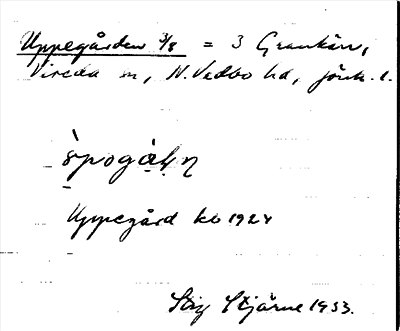 Uppegården 3/8 = 3 Grankärr,
Vireda sn, N. Vedbo hd, Jönk. l.
Uppegård kb 1924
Stig Stjärne 1933.